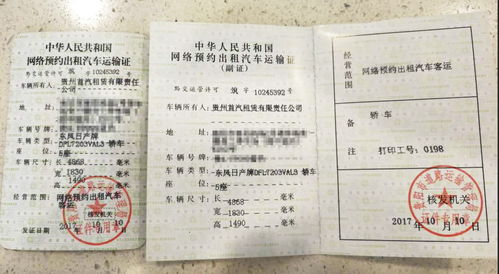 中华人民共和国
网络预约出租汽车运输证
黔交运管许可 筑 字 10245392 号
车辆所有人: 贵州首汽租赁有限责任
公司
地 址:
车辆号牌:
车辆类型: 东风日产牌
DFL7203VAL3 轿车
5座
车辆尺寸: 长 4868 毫米
宽 1830 毫米
高 1490 毫米
经营范围: 网络预约出租汽车
客运
核发机关
发证日期 2017 年 10 月 10
证件专用章
中华人民共和国
网络预约出租汽车运输证
(副证)
黔交运管许可 筑 字 10245392 号
车辆所有人: 贵州首汽租赁有限责任公司
地 址:
车辆号牌:
车辆类型: 东风日产牌DFL7203VAL3 轿车
5座
车辆尺寸: 长 4868 毫米
宽 1830 毫米
高 1490 毫米
经营范围
网络预约出租汽车客运
备注
轿车
打印工号: 0198
核发机关
2017 年 10 月 10 日
贵阳市道路运输管理局
证件专用章